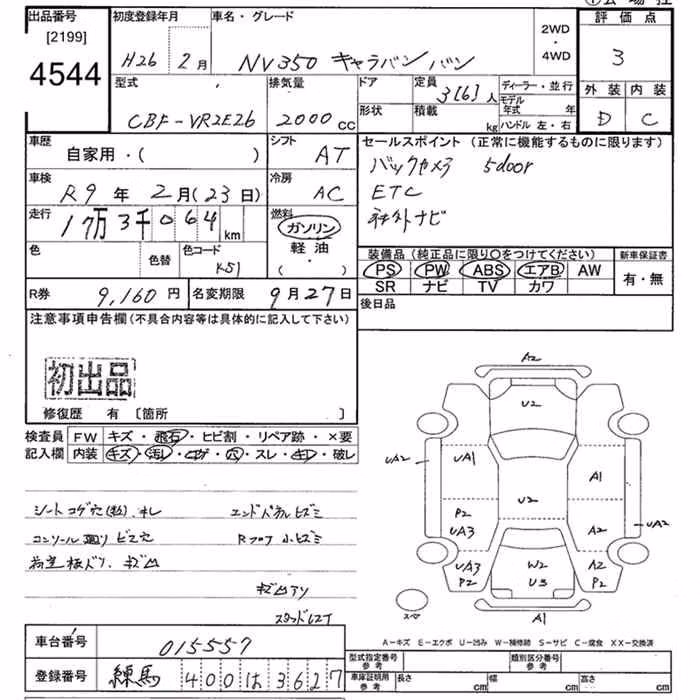 出品番号 初度登録年月 車名・グレード 2WD・4WD 評価点
[2199]
4544 H26 2月 NV350 キャラバン バン 3
型式 排気量 ドア 定員 3[6]人 ディーラー・並行 外装 内装
CBF-VR2E26 2000cc 形状 積載 kg モデル年式 年 ハンドル 左・右 D C
車歴 自家用・( ) シフト AT セールスポイント(正常に機能するものに限ります)
バックカメラ 5door
車検 R9年2月(23日) 冷房 AC ETC
走行 17万3千064km 燃料 ガソリン 軽油 ・( ) 社外ナビ
色 色替 色コード K51 装備品(純正品に限り○をつけてください) 新車保証書
PS PW ABS エアB AW 有・無
SR ナビ TV カワ
R券 9,160円 名変期限 9月27日 後日品
注意事項申告欄(不具合内容等は具体的に記入して下さい)
初出品
修復歴 有 [箇所 ]
検査員 FW キズ・飛石・ヒビ割・リペア跡・×要
記入欄 内装 キズ・汚レ・コゲ・穴・スレ・キレ・破レ
シート コゲ穴 キレ エンドパネルヒズミ
コンソール 廻り ビス穴 Rフロア 小ヒズミ
キズ凹
キズ凹アリ
A2
U2
UA2 UA1 A1
U2
P2 UA3 A2 UA2
UA3 P2 W2 U3 A2 P2
スペア A1
A-キズ E-エクボ U-凹み W-補修跡 S-サビ C-腐食 XX-交換済
車台番号 015557
型式指定番号 参考 類別区分番号 参考
登録番号 練馬 400 は 3627
車庫証明用 参考 長さ cm 幅 cm 高さ cm